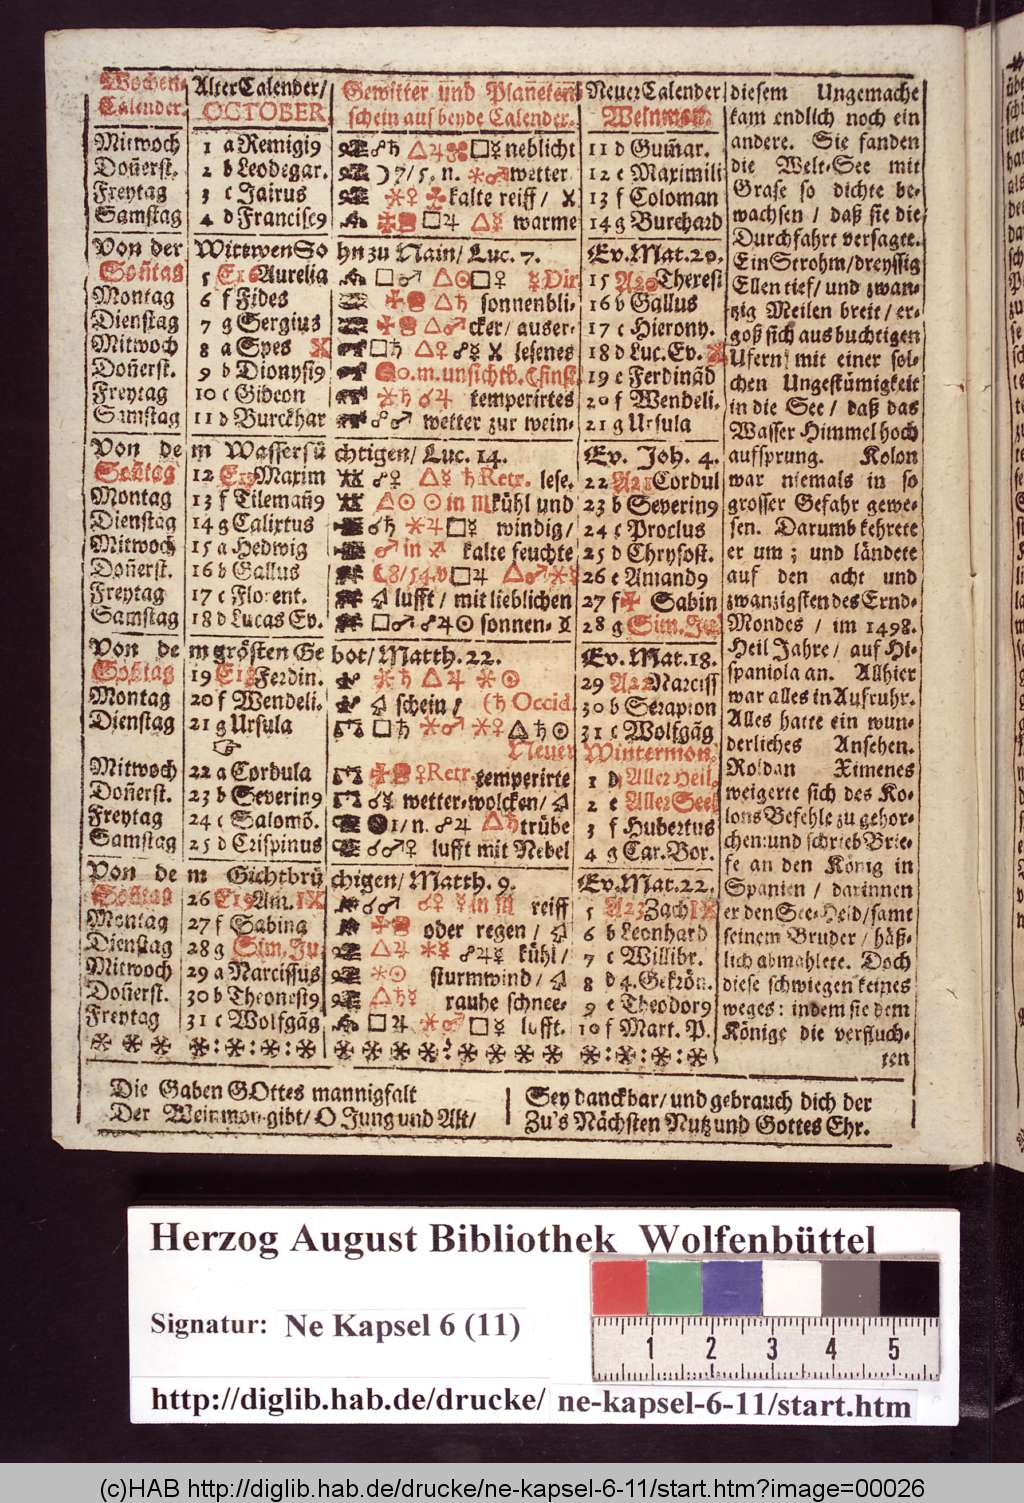 Wochen- Alter Calender/ Gewitter und Planeten- Neuer Calender
Calender. OCTOBER schein auf beyde Calender. Weinmon.
Mittwoch 1 a Remigi9 ☍♃ △♃ □☿ neblicht 11 d Gum̃ar.
Don̄erst. 2 b Leodegar. ☽7/5, n. ⚹♂ wetter 12 e Maximili
Freytag 3 c Jairus ⚹♀ kalte reiff/ 13 f Coloman
Samstag 4 d Francisc9 □♃ △☿ warme 14 g Burchard
Von der Wittwen Sohn zu Nain/ Luc. 7. Ev. Mat. 20.
Son̄tag 5 E16 Aurelia □♂ △☉□♀ ☿ Dir 15 A20 Theresi
Montag 6 f Fides △♄ sonnenbli- 16 b Gallus
Dienstag 7 g Sergius △♂cker/ auser- 17 c Hierony.
Mittwoch 8 a Spes □♄ △♀ ☍☿ lesenes 18 d Luc. Ev.
Don̄erst. 9 b Dionysi9 o.m. unsichtb. ☾finst. 19 e Ferdinād
Freytag 10 c Gideon ⚹♄ ☌♃ temperirtes 20 f Wendeli.
Samstag 11 d Burckhar ☍♂ wetter zur wein- 21 g Ursula
Von dem Wassersüchtigen/ Luc. 14. Ev. Joh. 4.
Son̄tag 12 E17 Maxim ☍♀ △☿ ♄ Retr. lese. 22 A21 Cordul
Montag 13 f Tileman̄9 △☉ ☉ in ♏ kühl und 23 b Severin9
Dienstag 14 g Calixtus ☌♄ ⚹♃□☿ windig/ 24 c Proclus
Mittwoch 15 a Hedwig ♂ in ♐ kalte feuchte 25 d Chrysost.
Don̄erst. 16 b Gallus ☾8/54.v □♃ △♂⚹☿ 26 e Amand9
Freytag 17 c Florent. lufft/ mit lieblichen 27 f Sabin
Samstag 18 d Lucas Ev. □♂ ☍♃☉ sonnen- 28 g Sim. Ju
Von dem grösten Gebot/ Matth. 22. Ev. Mat. 18.
Son̄tag 19 E18 Ferdin. ⚹♄ △♃ ⚹☉ 29 A22 Narciss
Montag 20 f Wendeli. schein/ (♄ Occid. 30 b Serapion
Dienstag 21 g Ursula □♄ ⚹♂ ⚹♀△♄☉ 31 c Wolfgāg
☞ Neuer Wintermon.
Mittwoch 22 a Cordula ♀Retr. temperirte 1 d Aller Heil.
Don̄erst. 23 b Severin9 ☌☿ wetter-wolcken/ 2 e Aller Seel
Freytag 24 c Salomō. 1/ n. ☍♃ △♄ trübe 3 f Hubertus
Samstag 25 d Crispinus ☌♂♀ lufft mit Nebel 4 g Car. Bor.
Von dem Gichtbrüchigen/ Matth. 9. Ev. Mat. 22.
Son̄tag 26 E19 Am. IX ☌♂ ☌♀ ☿ in ♏ reiff 5 A23 Zach IX
Montag 27 f Sabina oder regen/ 6 b Leonhard
Dienstag 28 g Sim. Ju. △♃ ⚹☿ ☍♃☿ kühl/ 7 c Willibr.
Mittwoch 29 a Narcissus ⚹☉ sturmwind/ 8 d 4. Gekrön.
Don̄erst. 30 b Theonest9 △♄☿ rauhe schnee- 9 e Theodor9
Freytag 31 c Wolfgāg □♃ ⚹♂ □☿ lufft. 10 f Mart. P.
diesem Ungemache
kam endlich noch ein
andere. Sie fanden
die Welt-See mit
Grase so dichte be-
wachsen / daß sie die
Durchfahrt versagte.
Ein Strohm/ dreyssig
Ellen tief/ und zwan-
tzig Meilen breit/ er-
goß sich aus buchtigen
Ufern/ mit einer sol-
chen Ungestümigkeit
in die See/ daß das
Wasser Himmel hoch
aufsprung. Kolon
war niemals in so
grosser Gefahr gewe-
sen. Darumb kehrete
er um; und ländete
auf den acht und
zwanzigsten des Ernd-
Mondes / im 1498.
Heil Jahre/ auf Hi-
spaniola an. Allhier
war alles in Aufruhr.
Alles hatte ein wun-
derliches Ansehen.
Roldan Ximenes
weigerte sich des Ko-
lons Befehle zu gehor-
chen: und schrieb Brie-
fe an den König in
Spanien / darinnen
er den See-Held/ samt
seinem Bruder / häß-
lich abmahlete. Doch
diese schwiegen keines
weges: indem sie dem
Könige die verfluch-
ten
Die Gaben GOttes mannigfalt
Der Weinmon gibt/ O Jung und Alt/
Sey danckbar/ und gebrauch dich der
Zu's Nächsten Nutz und Gottes Ehr.
Herzog August Bibliothek Wolfenbüttel
Signatur: Ne Kapsel 6 (11)
1 2 3 4 5
http://diglib.hab.de/drucke/ ne-kapsel-6-11/start.htm
(c)HAB http://diglib.hab.de/drucke/ne-kapsel-6-11/start.htm?image=00026